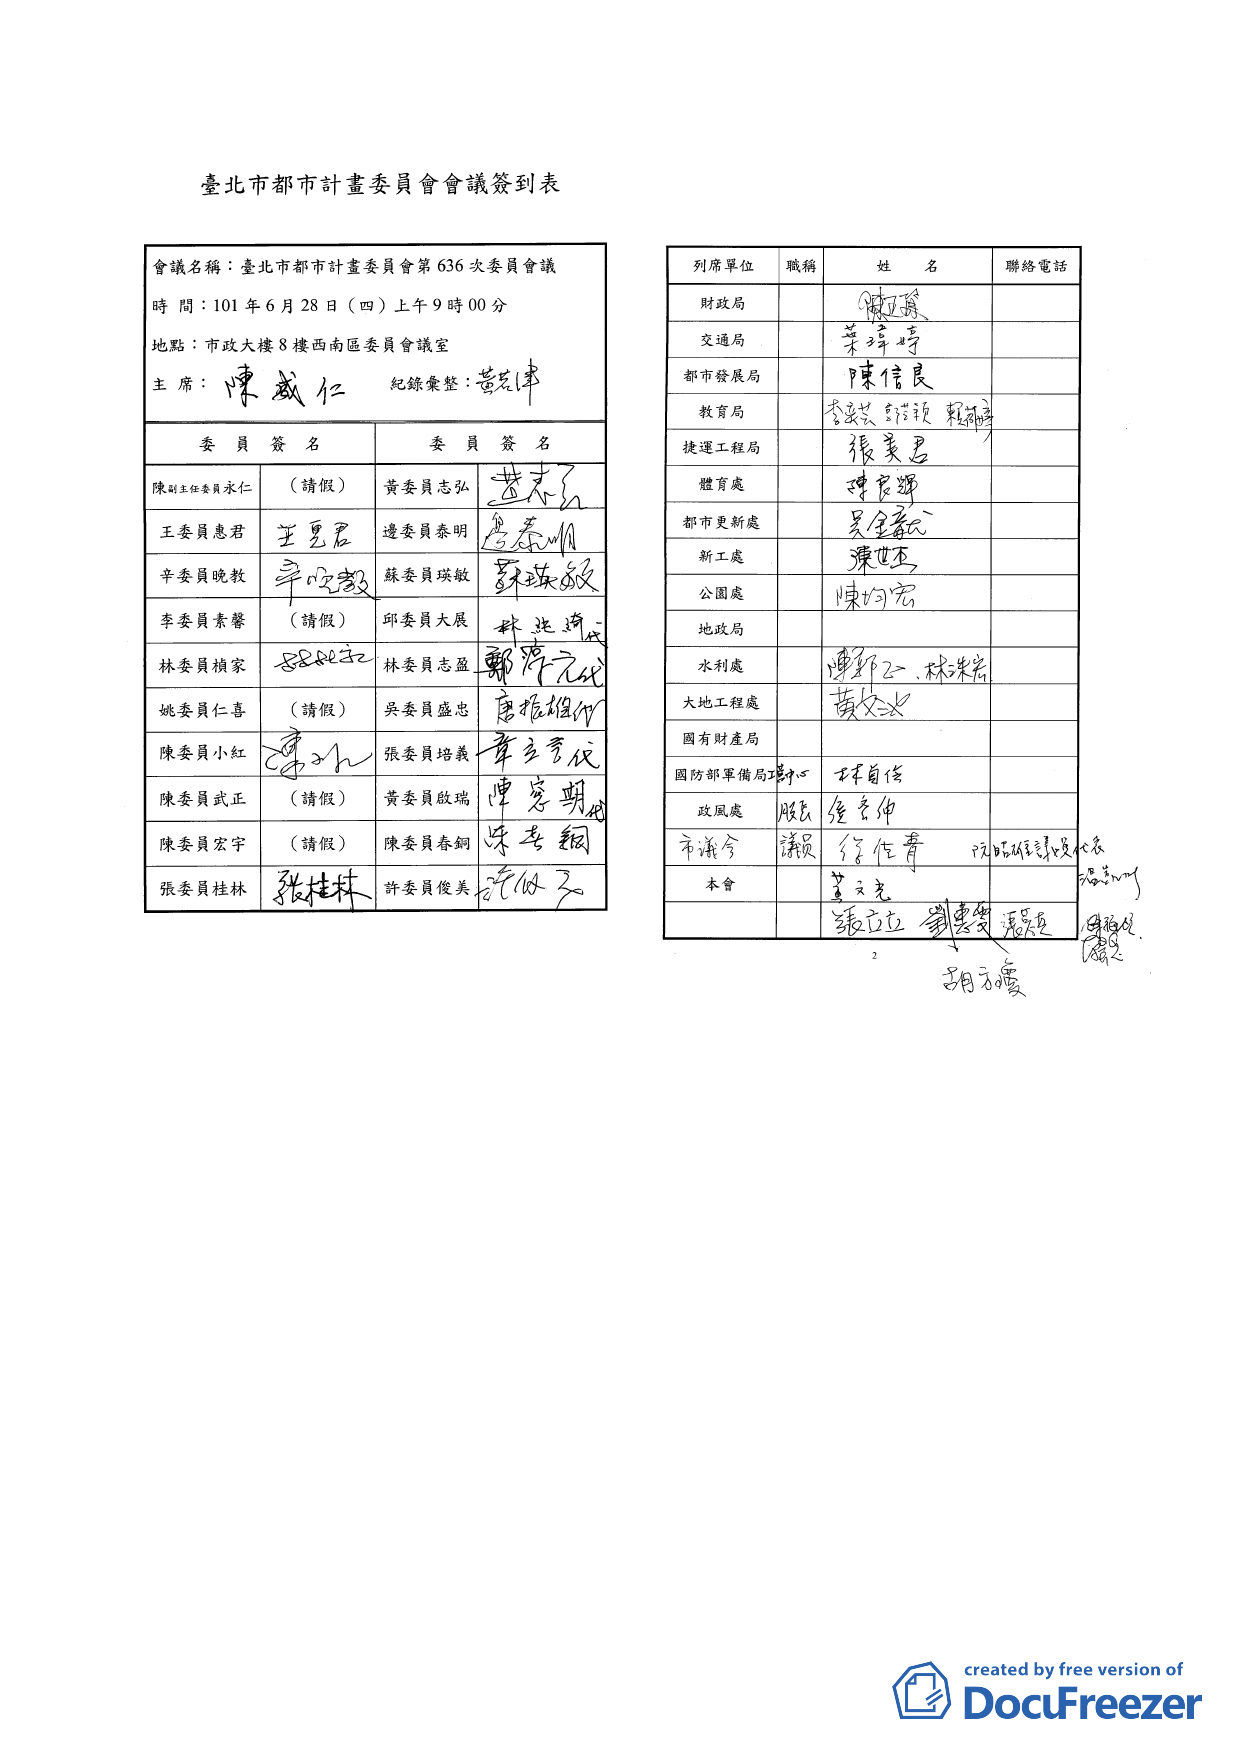 臺北市都市計畫委員會會議簽到表
會議名稱：臺北市都市計畫委員會第 636 次委員會議
時 間：101 年 6 月 28 日（四）上午 9 時 00 分
地點：市政大樓 8 樓西南區委員會議室
主 席： 陳威仁 紀錄彙整：黃若津
委 員 簽 名 委 員 簽 名
陳副主任委員永仁 （請假） 黃委員志弘 黃志弘
王委員惠君 王惠君 邊委員泰明 邊泰明
辛委員晚教 辛晚教 蘇委員瑛敏 蘇瑛敏
李委員素馨 （請假） 邱委員大展 林純綺代
林委員楨家 林委員志盈 鄭淳元代
姚委員仁喜 （請假） 吳委員盛忠 唐振雄代
陳委員小紅 陳小红 張委員培義 章立言代
陳委員武正 （請假） 黃委員啟瑞 陳憲期代
陳委員宏宇 （請假） 陳委員春銅 陳春銅
張委員桂林 張桂林 許委員俊美 許俊美
列席單位 職稱 姓 名 聯絡電話
財政局
交通局 葉瑋婷
都市發展局 陳信良
教育局
捷運工程局 張美君
體育處 陳良輝
都市更新處
新工處 陳世杰
公園處 陳均宏
地政局
水利處 陳郭正、林洙宏
大地工程處
國有財產局
國防部軍備局工營中心 林自信
政風處 股長
市議会 議員 徐佳青 阮昭雄議員代表
本會 黃文光
張立立 劉惠雯
2
胡方瓊
created by free version of
DocuFreezer